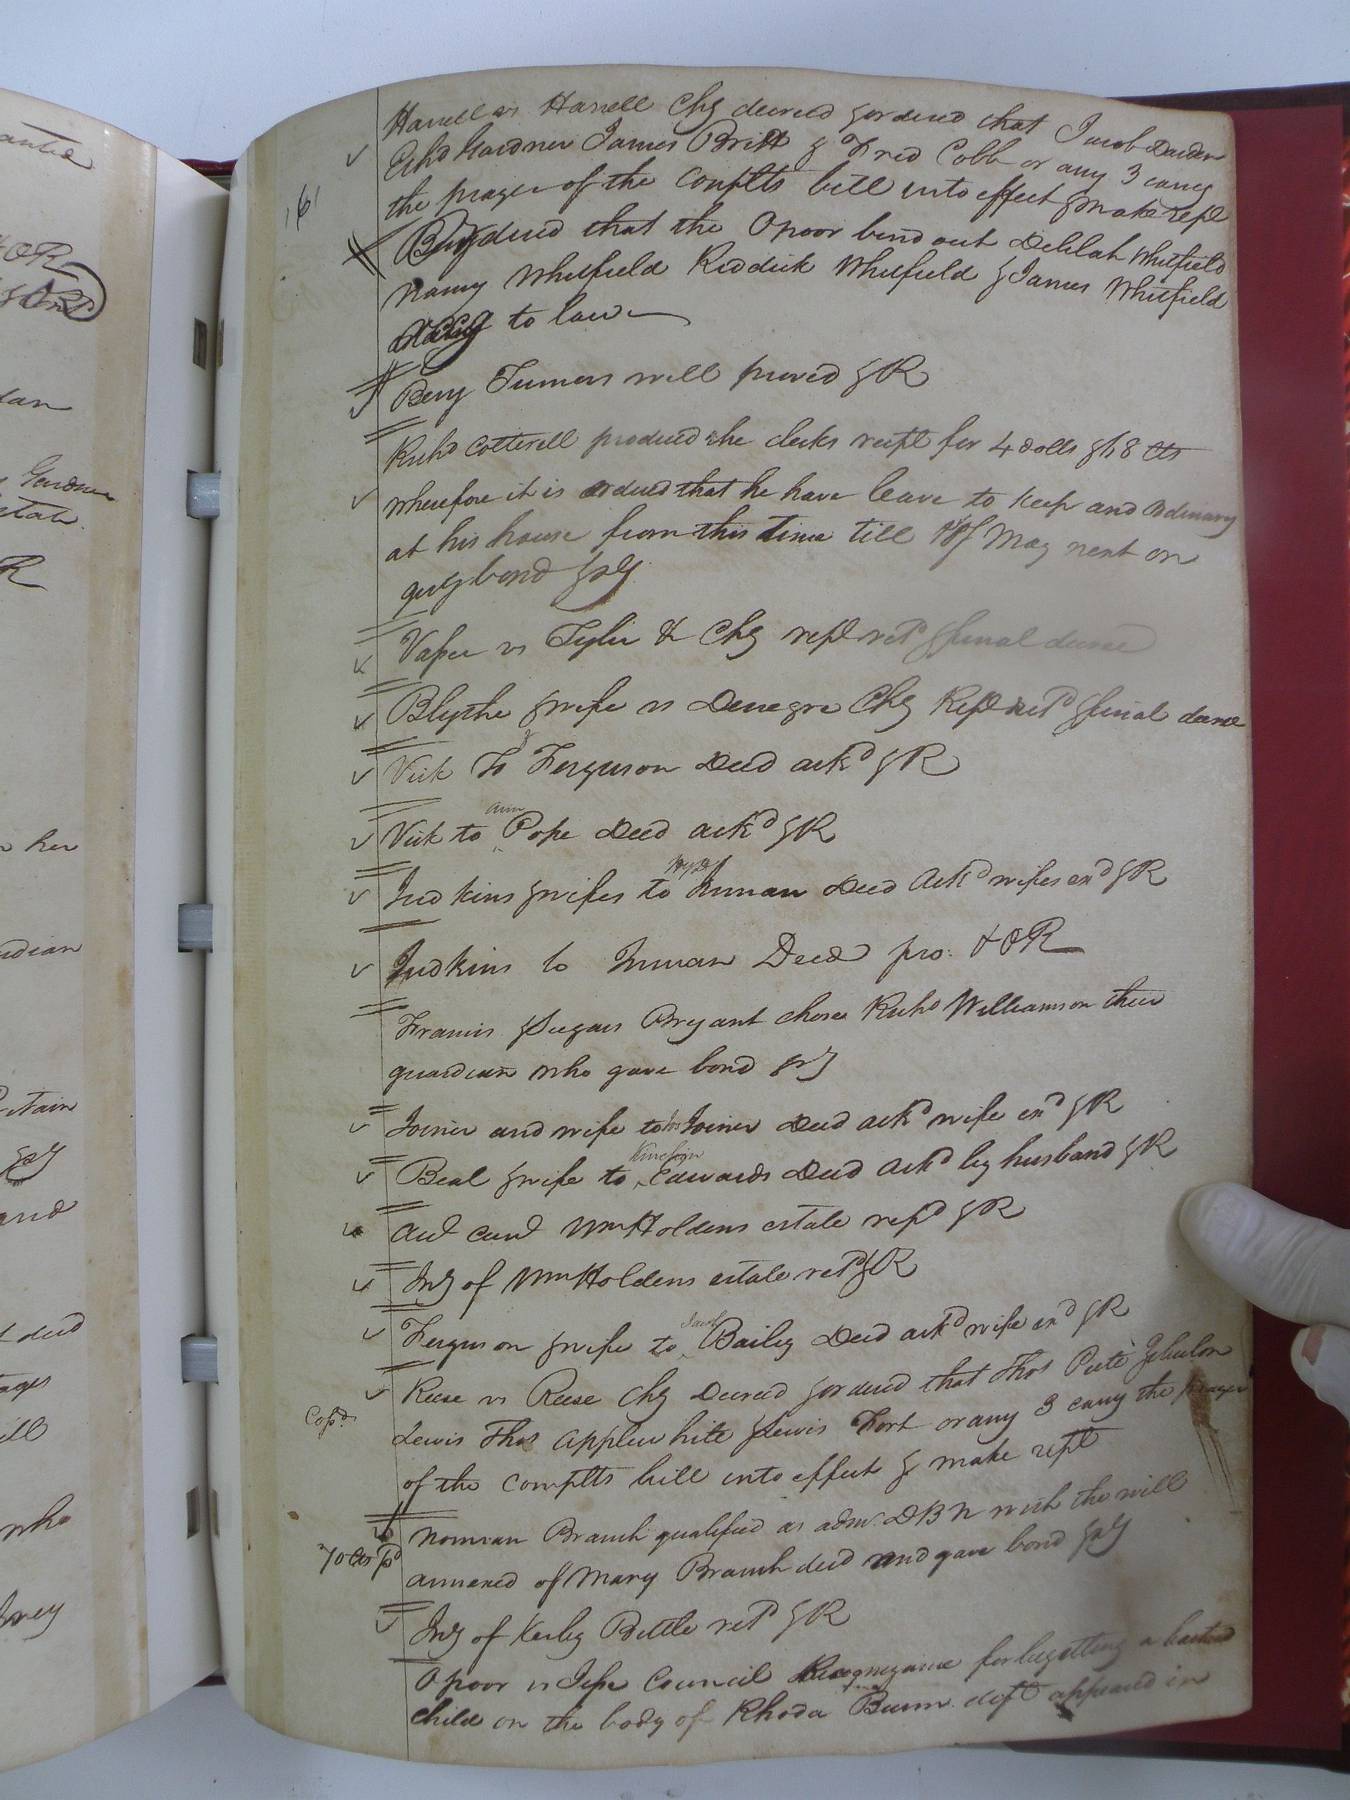 161
Harrell vs Harrell Chy decreed & ordered that Jacob Darden
Richd Gardner James Britt & Fred Cobb or any 3 carry
the prayer of the complts bill into effect & make rept
ordered that the Opoor bind out Delilah Whitfield
Nancy Whitfield Riddick Whitfield & James Whitfield
accg to law
Benj Turners will proved & R
Richd Cotterell produced the clerks recipt for 4 dolls & 68 Cts
wherefore it is ordered that he have leave to keep and ordinary
at his house from this time till May next on
givg bond &c
vs Tyler & Chy rept retd & final decree
Blythe & wife vs Denegre Chy Rept retd & final decree
Vick To Ferguson Deed ackd & R
Vick to Ann Pope Deed ackd & R
Judkins & wifes to Inman Deed Ackd wifes exd & R
Judkins to Inman Deed pro. & OR
Francis & Sugars Bryant chose Richd Williamson their
guardian who gave bond &c
Joiner and wife to Jos Joiner Deed ackd wife exd & R
Beal & wife to Kinchin Edwards Deed Ackd by husband & R
Acct curt Wm Holdens estate retd & R
Invy of Wm Holdens estate retd & R
Ferguson & wife to Bailey Deed ackd wife exd & R
Reese vs Reese Chy Decreed & ordered that Thos Pete Zebulon
Copd.
Lewis Thos Applewhite & Lewis Fort or any 3 carry the prayer
of the complts bill into effect & make rept
Norman Branch qualified as admr. DBN with the will
70 Cts pd
annexed of Mary Branch decd and gave bond &c
Invy of Kerby Bittle retd & R
Opoor vs Jesse Council Recognizance for begetting a bastard
child on the body of Rhoda Bunn. deft appeared in